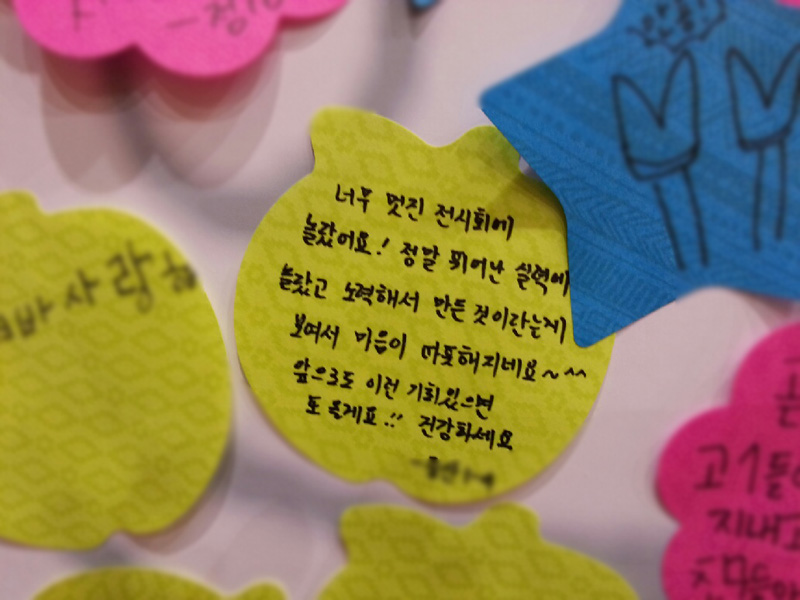 너무 멋진 전시회에
놀랐어요! 정말 뛰어난 실력에
놀랐고 노력해서 만든 것이란는게
보여서 마음이 따뜻해지네요~^^
앞으로도 이런 기회있으면
또 올게요!! 건강하세요
사랑해
고1들
지내고